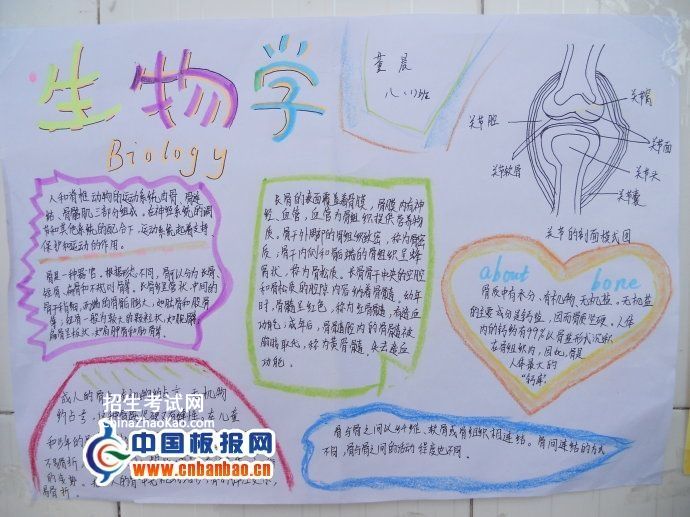 生物学
Biology
董晨
八.(1)班
关节窝
关节腔
关节面
关节软骨
关节头
关节囊
关节的剖面模式图
人和脊椎动物的运动系统由骨、骨连
结、骨骼肌三部分组成。在神经系统的调
节和其他系统的配合下，运动系统起着支持
保护和运动的作用。
骨是一种器官。根据形态不同，骨可以分为长骨、
短骨、扁骨和不规则骨等。长骨呈管状，中间的
骨干稍细，两端的骨骺膨大，如肱骨和股骨
等；短骨一般为
长骨的表面覆盖着骨膜，骨膜内有神
经、血管，血管为骨组织提供营养物
质。骨干外周的骨组织致密，称为骨密
质；骨干内侧和骺端的骨组织呈蜂
窝状，称为骨松质。长骨骨干中央的空腔
和骨松质的腔隙内容纳着骨髓。幼年
时，骨髓呈红色，称为红骨髓，有造血
功能；成年后，骨髓腔内的骨髓被
脂肪取代，称为黄骨髓，失去造血
功能。
about bone
骨质中有水分、有机物、无机盐。无机盐
的主要成分是钙盐，因而骨质坚硬。人体
内的钙约有99%以骨盐形式沉积
在骨组织内，因此，骨是
人体最大的
“钙库”
成人的骨
物约占
和少年的
骨与骨之间以纤维、软骨或骨组织相连结。骨间连结的方式
不同，骨与骨之间的活动程度也不同。
招生考试网
chinaZhaoKao.com
中国板报网
www.cnbanbao.cn